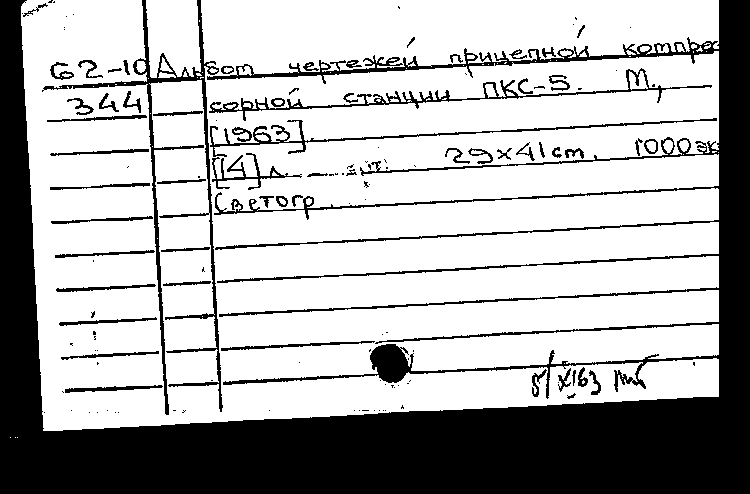 62-10 Альбом чертежей прицепной компрес-
344 сорной станции ПКС-5. М.,
[1963].
[14] л. 29×41 cm. 1000 эк
Светогр.
5/X163